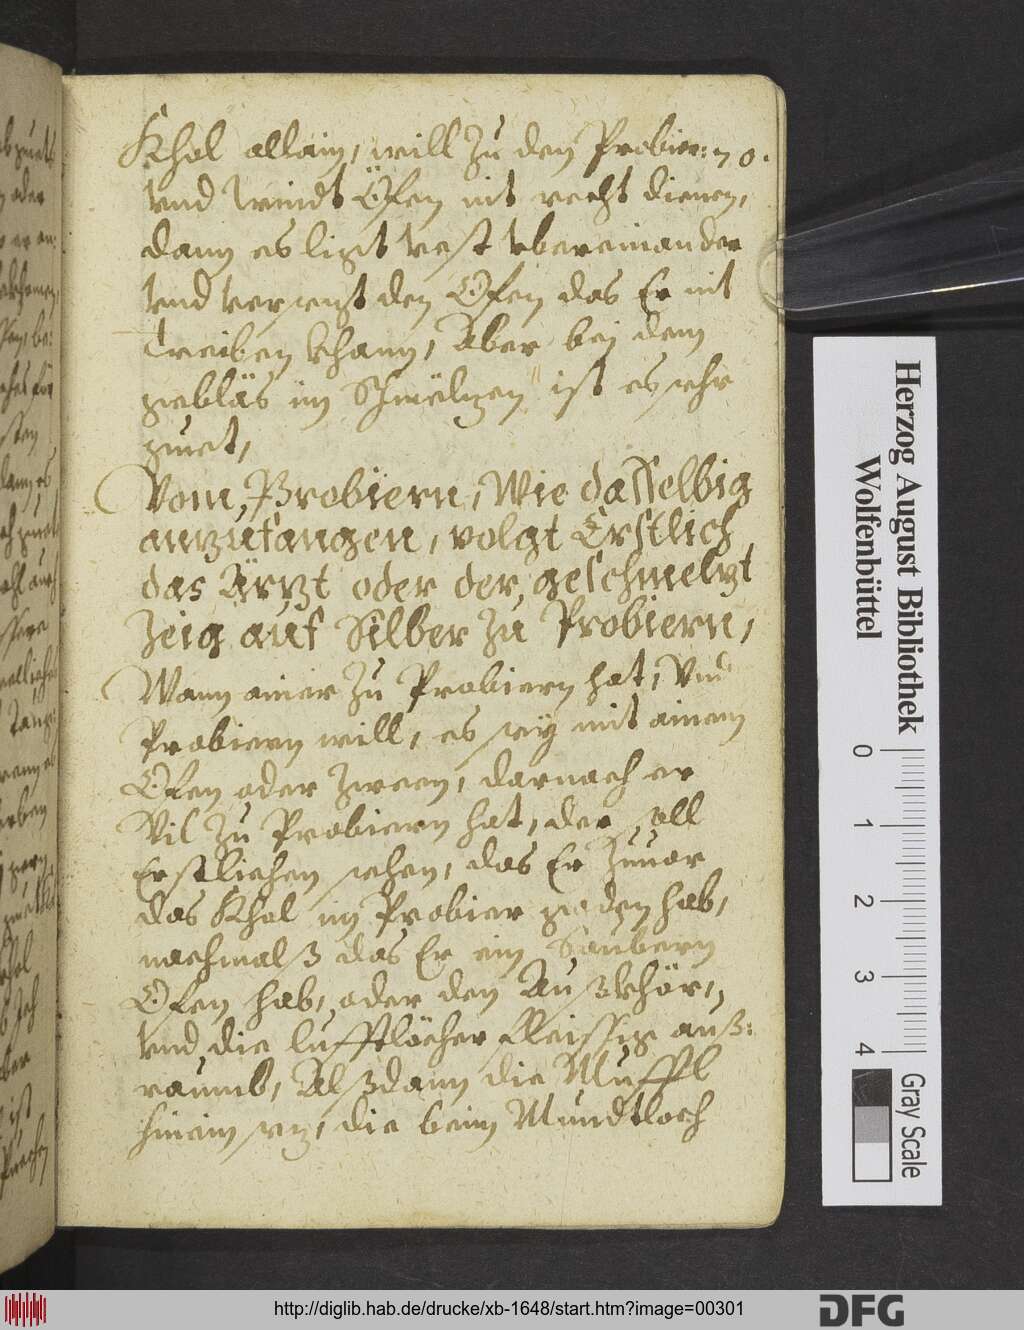 Khol allain, will Zu den Probier: 70.
Vnd windt Öfen nit recht dienen,
dann es ligt vest vbereinander
Vnd versezt den Ofen das Er nit
treiben khann, Aber bej dem
gebläs im Schmelzen ist es sehr
guet,
Vom Probiern, Wie dasselbig
anzufangen, volgt Erstlich
das Ärzt oder der geschmelzt
Zeig auf Silber Zu Probiern,
Wann ainer Zu Probiern hat, Vnd
Probiern will, es sej mit ainem
Ofen oder Zween, darnach er
Vil Zu Probiern hat, der soll
Erstlichen sehen, das Er Zuuor
das Khol im Probier gaden hab,
nachmalß das Er ein Saubern
Ofen hab, oder den Außkhör,
Vnd die lufftlöcher fleissig auß:
raumb, Alßdann die Muffl
hinein sez, die beim Mundtloch
Herzog August Bibliothek
Wolfenbüttel
0 1 2 3 4
Gray Scale
http://diglib.hab.de/drucke/xb-1648/start.htm?image=00301
DFG